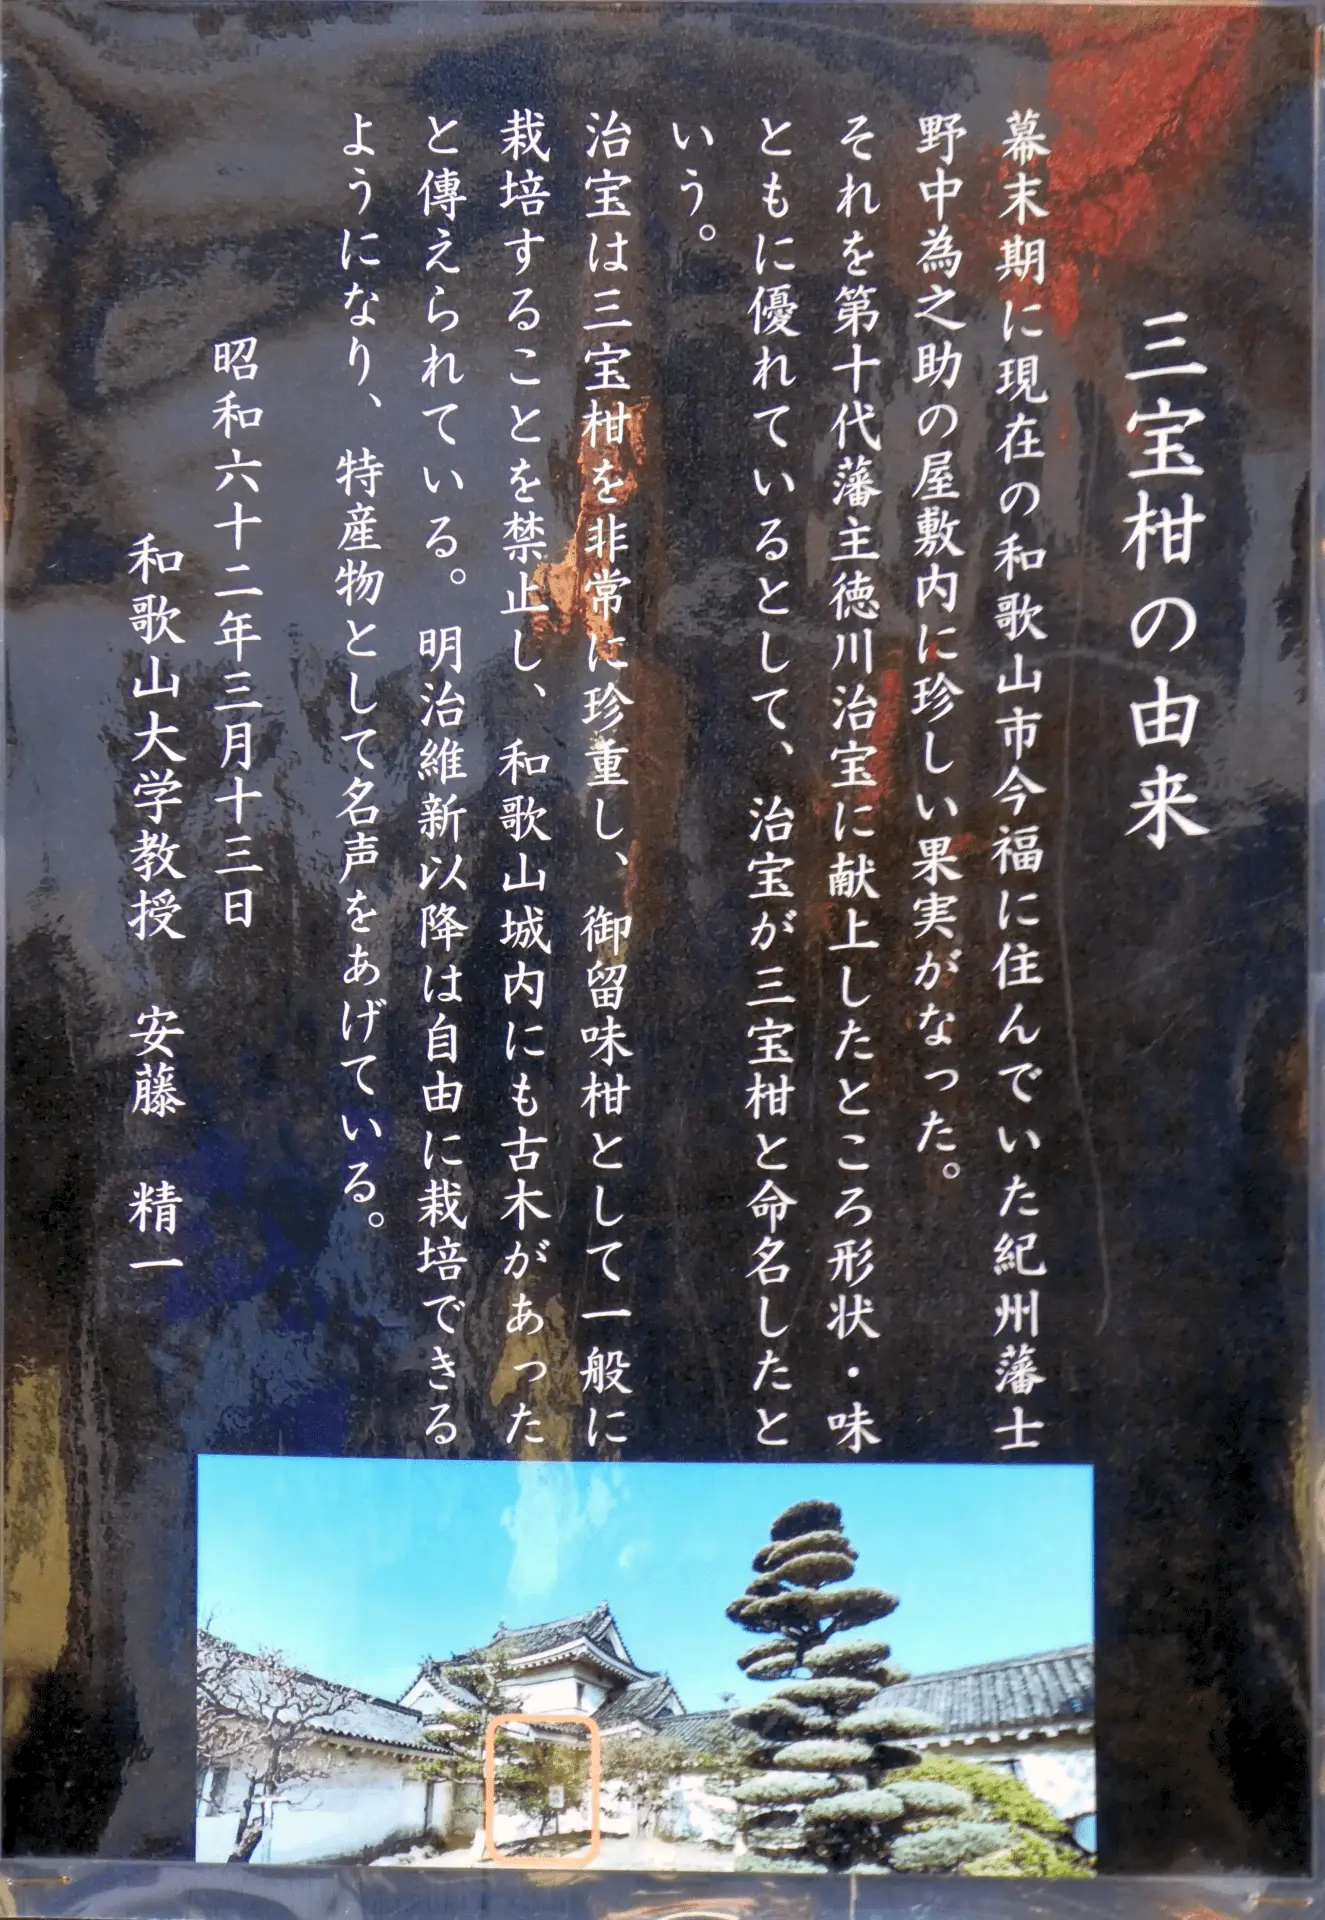 三宝柑の由来
幕末期に現在の和歌山市今福に住んでいた紀州藩士
野中為之助の屋敷内に珍しい果実がなった。
それを第十代藩主徳川治宝に献上したところ形状・味
ともに優れているとして、治宝が三宝柑と命名したと
いう。
治宝は三宝柑を非常に珍重し、御留味柑として一般に
栽培することを禁止し、和歌山城内にも古木があった
と傳えられている。明治維新以降は自由に栽培できる
ようになり、特産物として名声をあげている。
昭和六十二年三月十三日
和歌山大学教授 安藤 精一